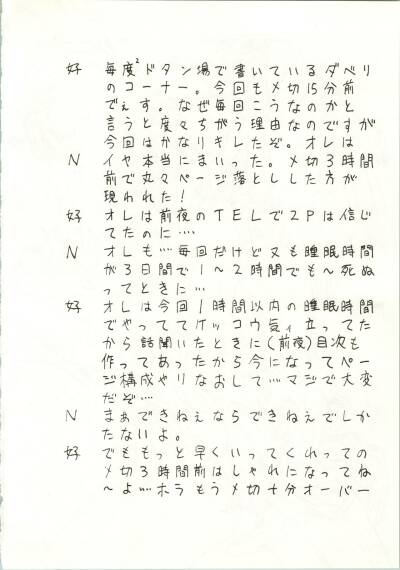 好 毎度²ドタン場で書いているダベリ
のコーナー。今回も〆切15分前
でぇす。なぜ毎回こうなのかと
言うと度々ちがう理由なのですが
今回はかなりキレたぞ。オレは
N イヤ本当にまいった。〆切3時間
前で丸々ページ落としした方が
現われた!
好 オレは前夜のTELで2Pは信じ
てたのに…
N オレも…毎回だけど又も睡眠時間
が3日間で1〜2時間でも〜死ぬ
ってときに…
好 オレは今回1時間以内の睡眠時間
でやっててけッコウ気ィ立ってた
から話聞いたときに(前夜)目次も
作ってあったから今になってペー
ジ構成やりなおして…マジで大変
だぞ…
N まぁできねぇならできねぇでしか
たないよ。
好 でももっと早くいってくれっての
〆切3時間前はしゃれになってね
〜よ…ホラもう〆切十分オーバー